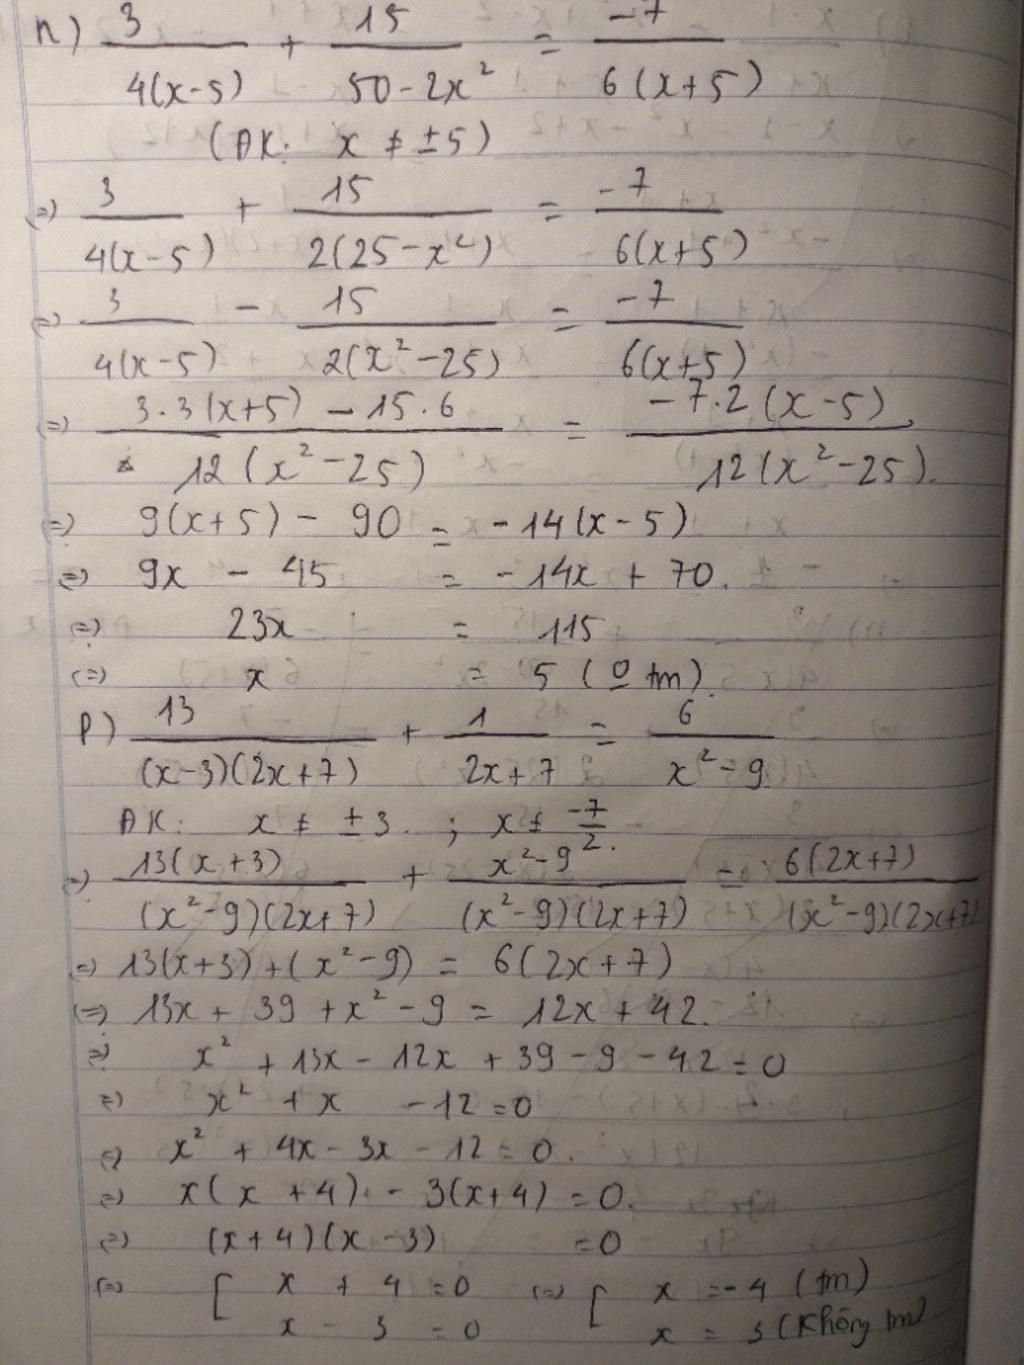 n) 3/4(x-5) + 15/50-2x² = -7/6(x+5)
(ĐK: x ≠ ±5)
(=) 3/4(x-5) + 15/2(25-x²) = -7/6(x+5)
(=) 3/4(x-5) - 15/2(x²-25) = -7/6(x+5)
(=) 3.3(x+5) - 15.6/12(x²-25) = -7.2(x-5)/12(x²-25)
(=) 9(x+5) - 90 = -14(x-5)
(=) 9x - 45 = -14x + 70.
(=) 23x = 115
(=) x = 5 (0 tm).
p) 13/(x-3)(2x+7) + 1/2x+7 = 6/x²-9
ĐK: x ≠ ±3 ; x ≠ -7/2.
(=) 13(x+3)/(x²-9)(2x+7) + x²-9/(x²-9)(2x+7) = 6(2x+7)/(x²-9)(2x+7)
(=) 13(x+3)+(x²-9) = 6(2x+7)
(=) 13x + 39 + x² - 9 = 12x + 42.
(=) x² + 13x - 12x + 39 - 9 - 42 = 0
(=) x² + x - 12 = 0
(=) x² + 4x - 3x - 12 = 0.
(=) x(x+4) - 3(x+4) = 0.
(=) (x+4)(x-3) = 0
(=) [ x + 4 = 0 (=) [ x = -4 (tm)
x - 3 = 0 x = 3 (Không tm)